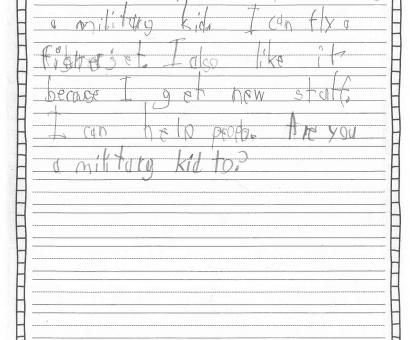 a military kid. I can fly a
fighter jet. I also like it
becase I get new stuff.
I can help people. Are you
a military kid to?